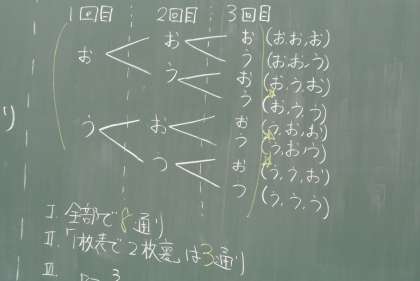 1回目 2回目 3回目
お お お (お,お,お)
う (お,お,う)
う お (お,う,お)
う (お,う,う)
う お お (う,お,お)
う (う,お,う)
う お (う,う,お)
う (う,う,う)
り
I. 全部で8通り
II.「1枚表で2枚裏」は3通り
III
3